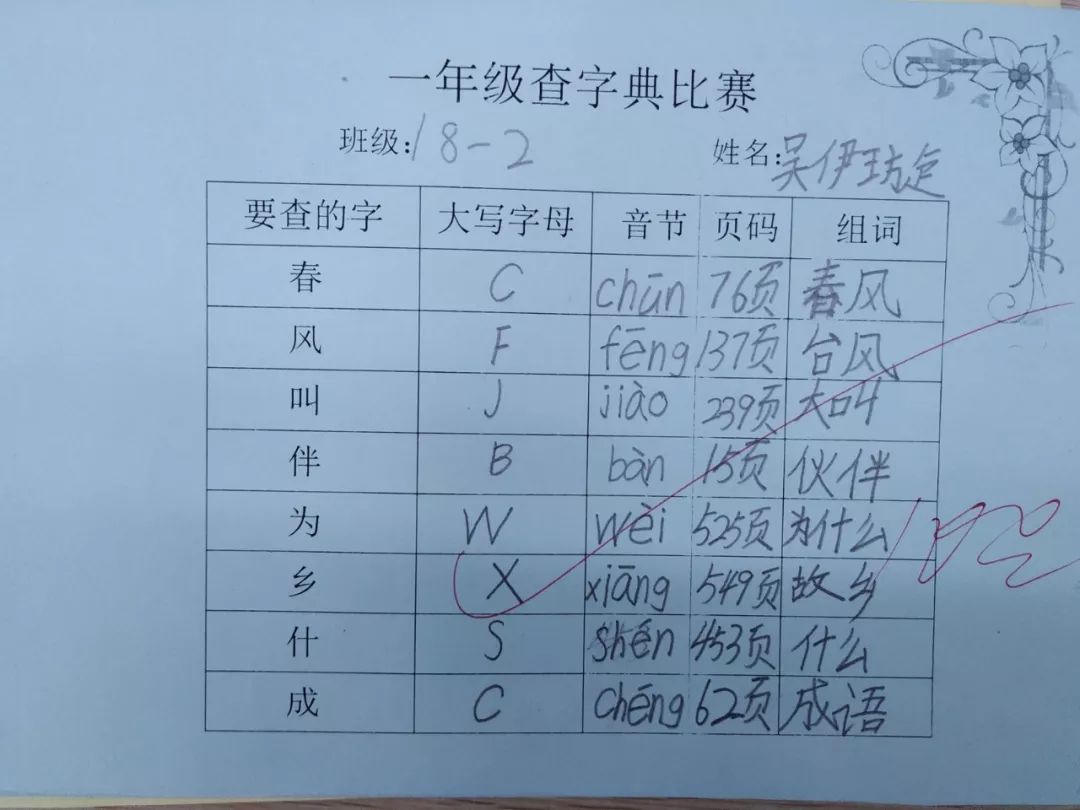 一年级查字典比赛
班级:18-2 姓名:吴伊
要查的字 大写字母 音节 页码 组词
春 C chūn 76页 春风
风 F fēng 137页 台风
叫 J jiào 239页 大叫
伴 B bàn 15页 伙伴
为 W wèi 525页 为什么
乡 X xiāng 549页 故乡
什 S shén 453页 什么
成 C chēng 62页 成语